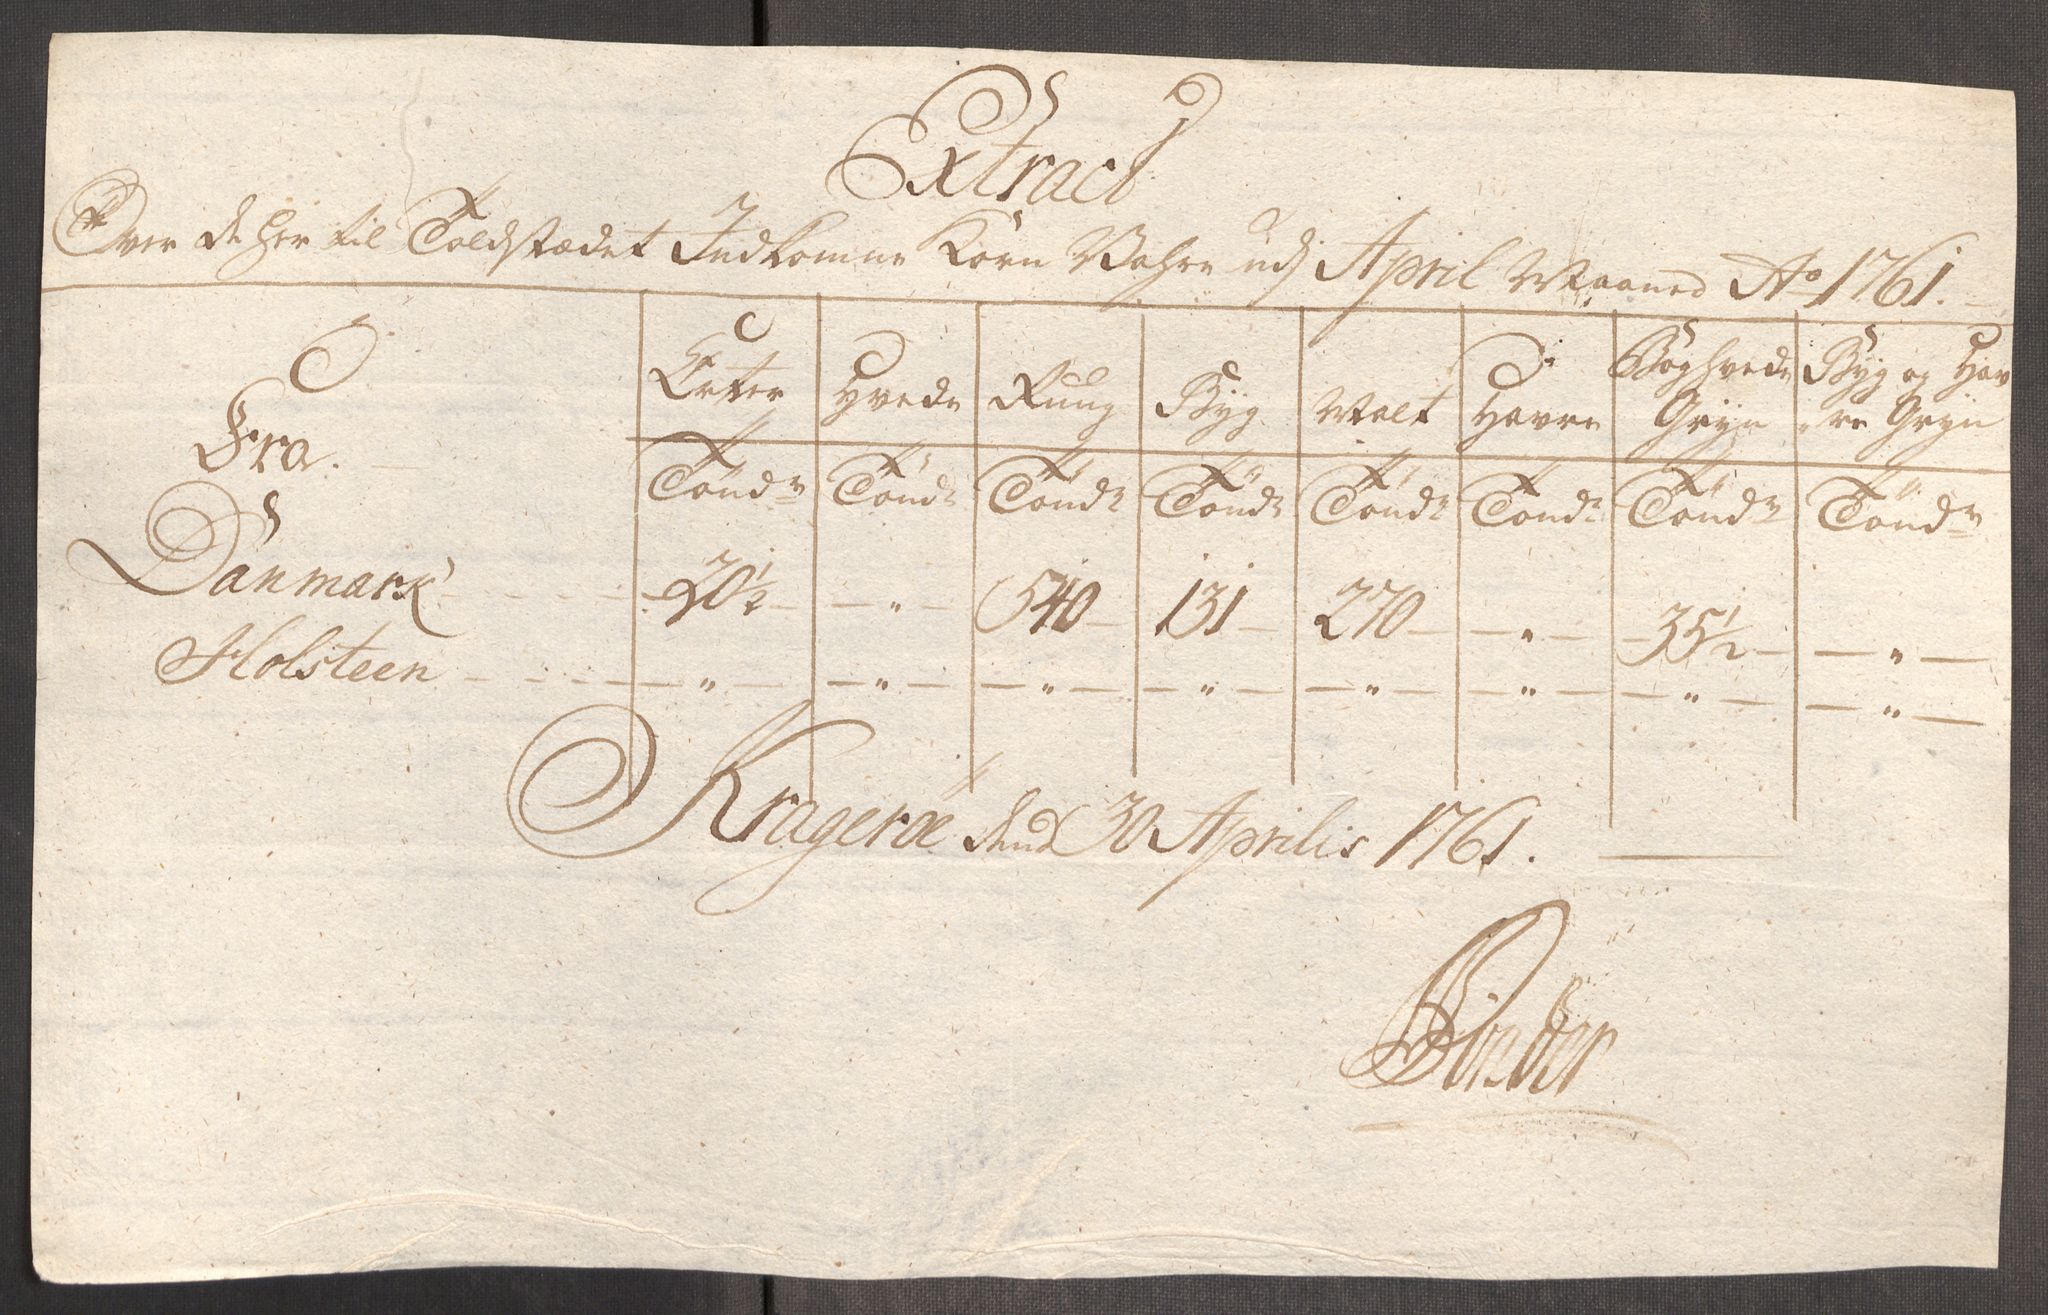 Extract
Over de her til Toldstædet Indkomne Korn Vahre udj April Maaned Ao 1761.
Fra. Erter Hvede Rug Byg Malt Havre Boghvede Gryn Byg og Havre Gryn
Tönd Tönd Tönd Tönd Tönd Tönd Tönd Tönd
Danmark 20½ " 540 131 270 " 35½ "
Holsteen " " " " " " " "
Krageröe dend 30 Aprilis 1761.